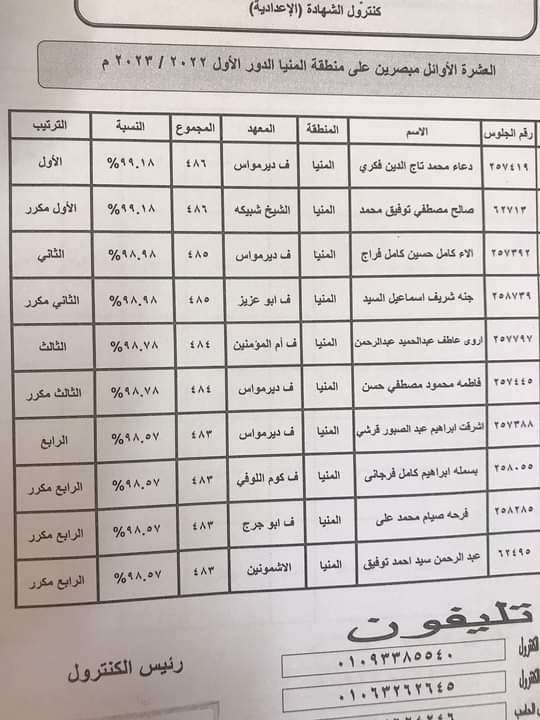 كنترول الشهادة (الإعدادية)
العشرة الأوائل مبصرين على منطقة المنيا الدور الأول ٢٠٢٢ / ٢٠٢٣ م
رقم الجلوس الاسم المنطقة المعهد المجموع النسبة الترتيب
٢٥٧٤١٩ دعاء محمد تاج الدين فكري المنيا ف ديرمواس ٤٨٦ %٩٩.١٨ الأول
٦٢٧١٣ صالح مصطفي توفيق محمد المنيا الشيخ شبيكه ٤٨٦ %٩٩.١٨ الأول مكرر
٢٥٧٣٩٢ الاء كامل حسين كامل فراج المنيا ف ديرمواس ٤٨٥ %٩٨.٩٨ الثاني
٢٥٨٧٣٩ جنه شريف اسماعيل السيد المنيا ف ابو عزيز ٤٨٥ %٩٨.٩٨ الثاني مكرر
٢٥٧٧٩٧ اروى عاطف عبدالحميد عبدالرحمن المنيا ف أم المؤمنين ٤٨٤ %٩٨.٧٨ الثالث
٢٥٧٤٤٥ فاطمه محمود مصطفي حسن المنيا ف ديرمواس ٤٨٤ %٩٨.٧٨ الثالث مكرر
٢٥٧٣٨٨ اشرقت ابراهيم عبد الصبور قرشي المنيا ف ديرمواس ٤٨٣ %٩٨.٥٧ الرابع
٢٥٨٠٥٥ بسمله ابراهيم كامل فرجانى المنيا ف كوم اللوفي ٤٨٣ %٩٨.٥٧ الرابع مكرر
٢٥٨٢٨٥ فرحه صيام محمد على المنيا ف ابو جرج ٤٨٣ %٩٨.٥٧ الرابع مكرر
٦٢٤٩٥ عبد الرحمن سيد احمد توفيق المنيا الاشمونين ٤٨٣ %٩٨.٥٧ الرابع مكرر
تليفون
رئيس الكنترول
٠١٠٩٣٣٨٥٥٤٠
٠١٠٦٣٢٦٢٦٤٥